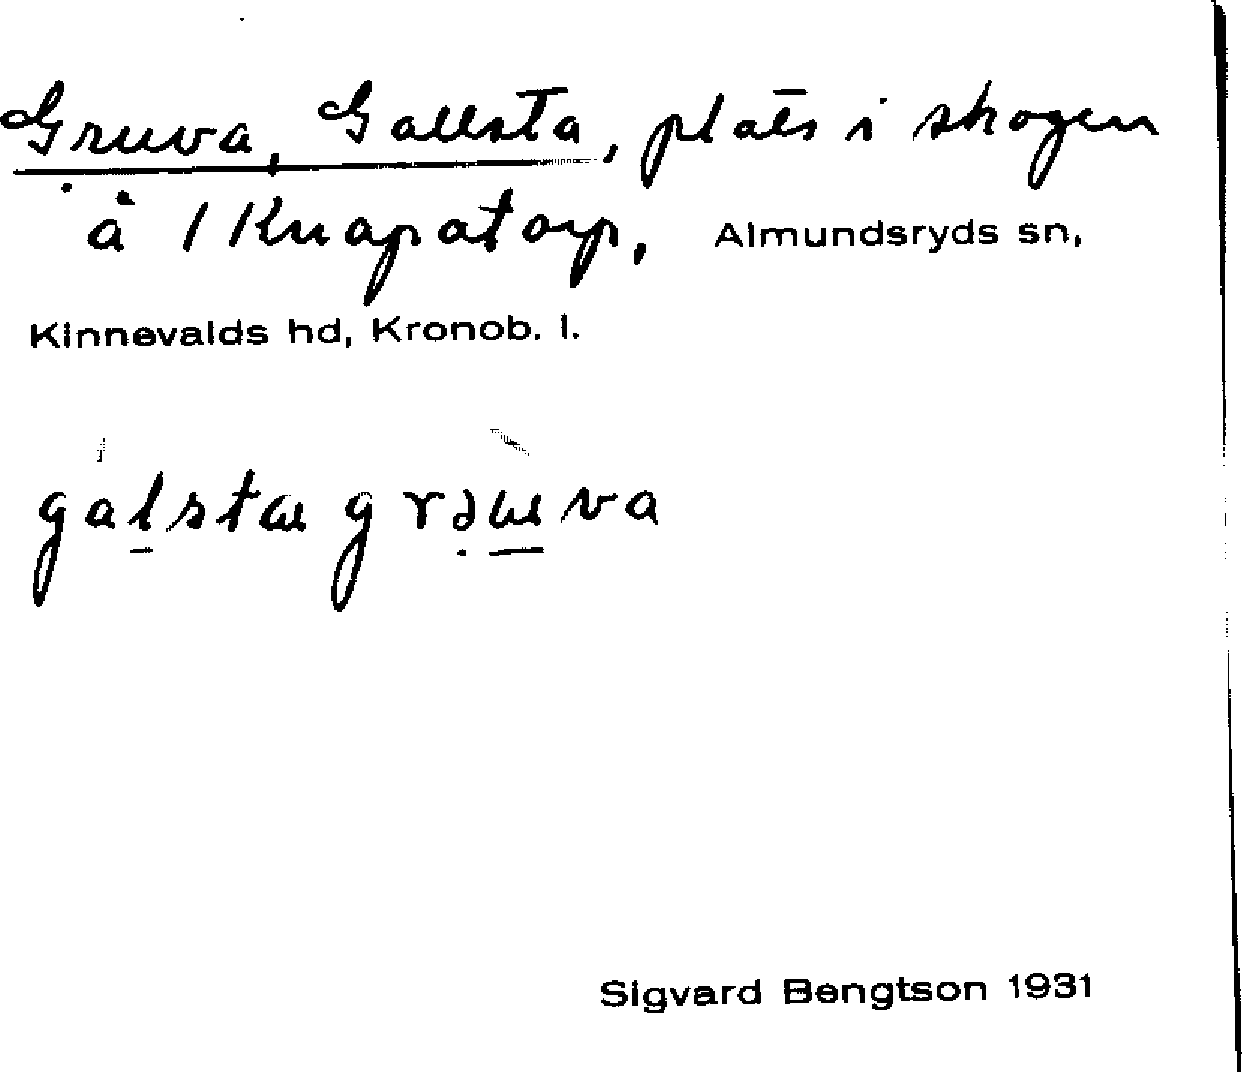 Gruva, Gallsta, plats i skogen
å 1 Knapatorp, Almundsryds sn,
Kinnevalds hd, Kronob. l.
galsta grəɯva
Sigvard Bengtson 1931